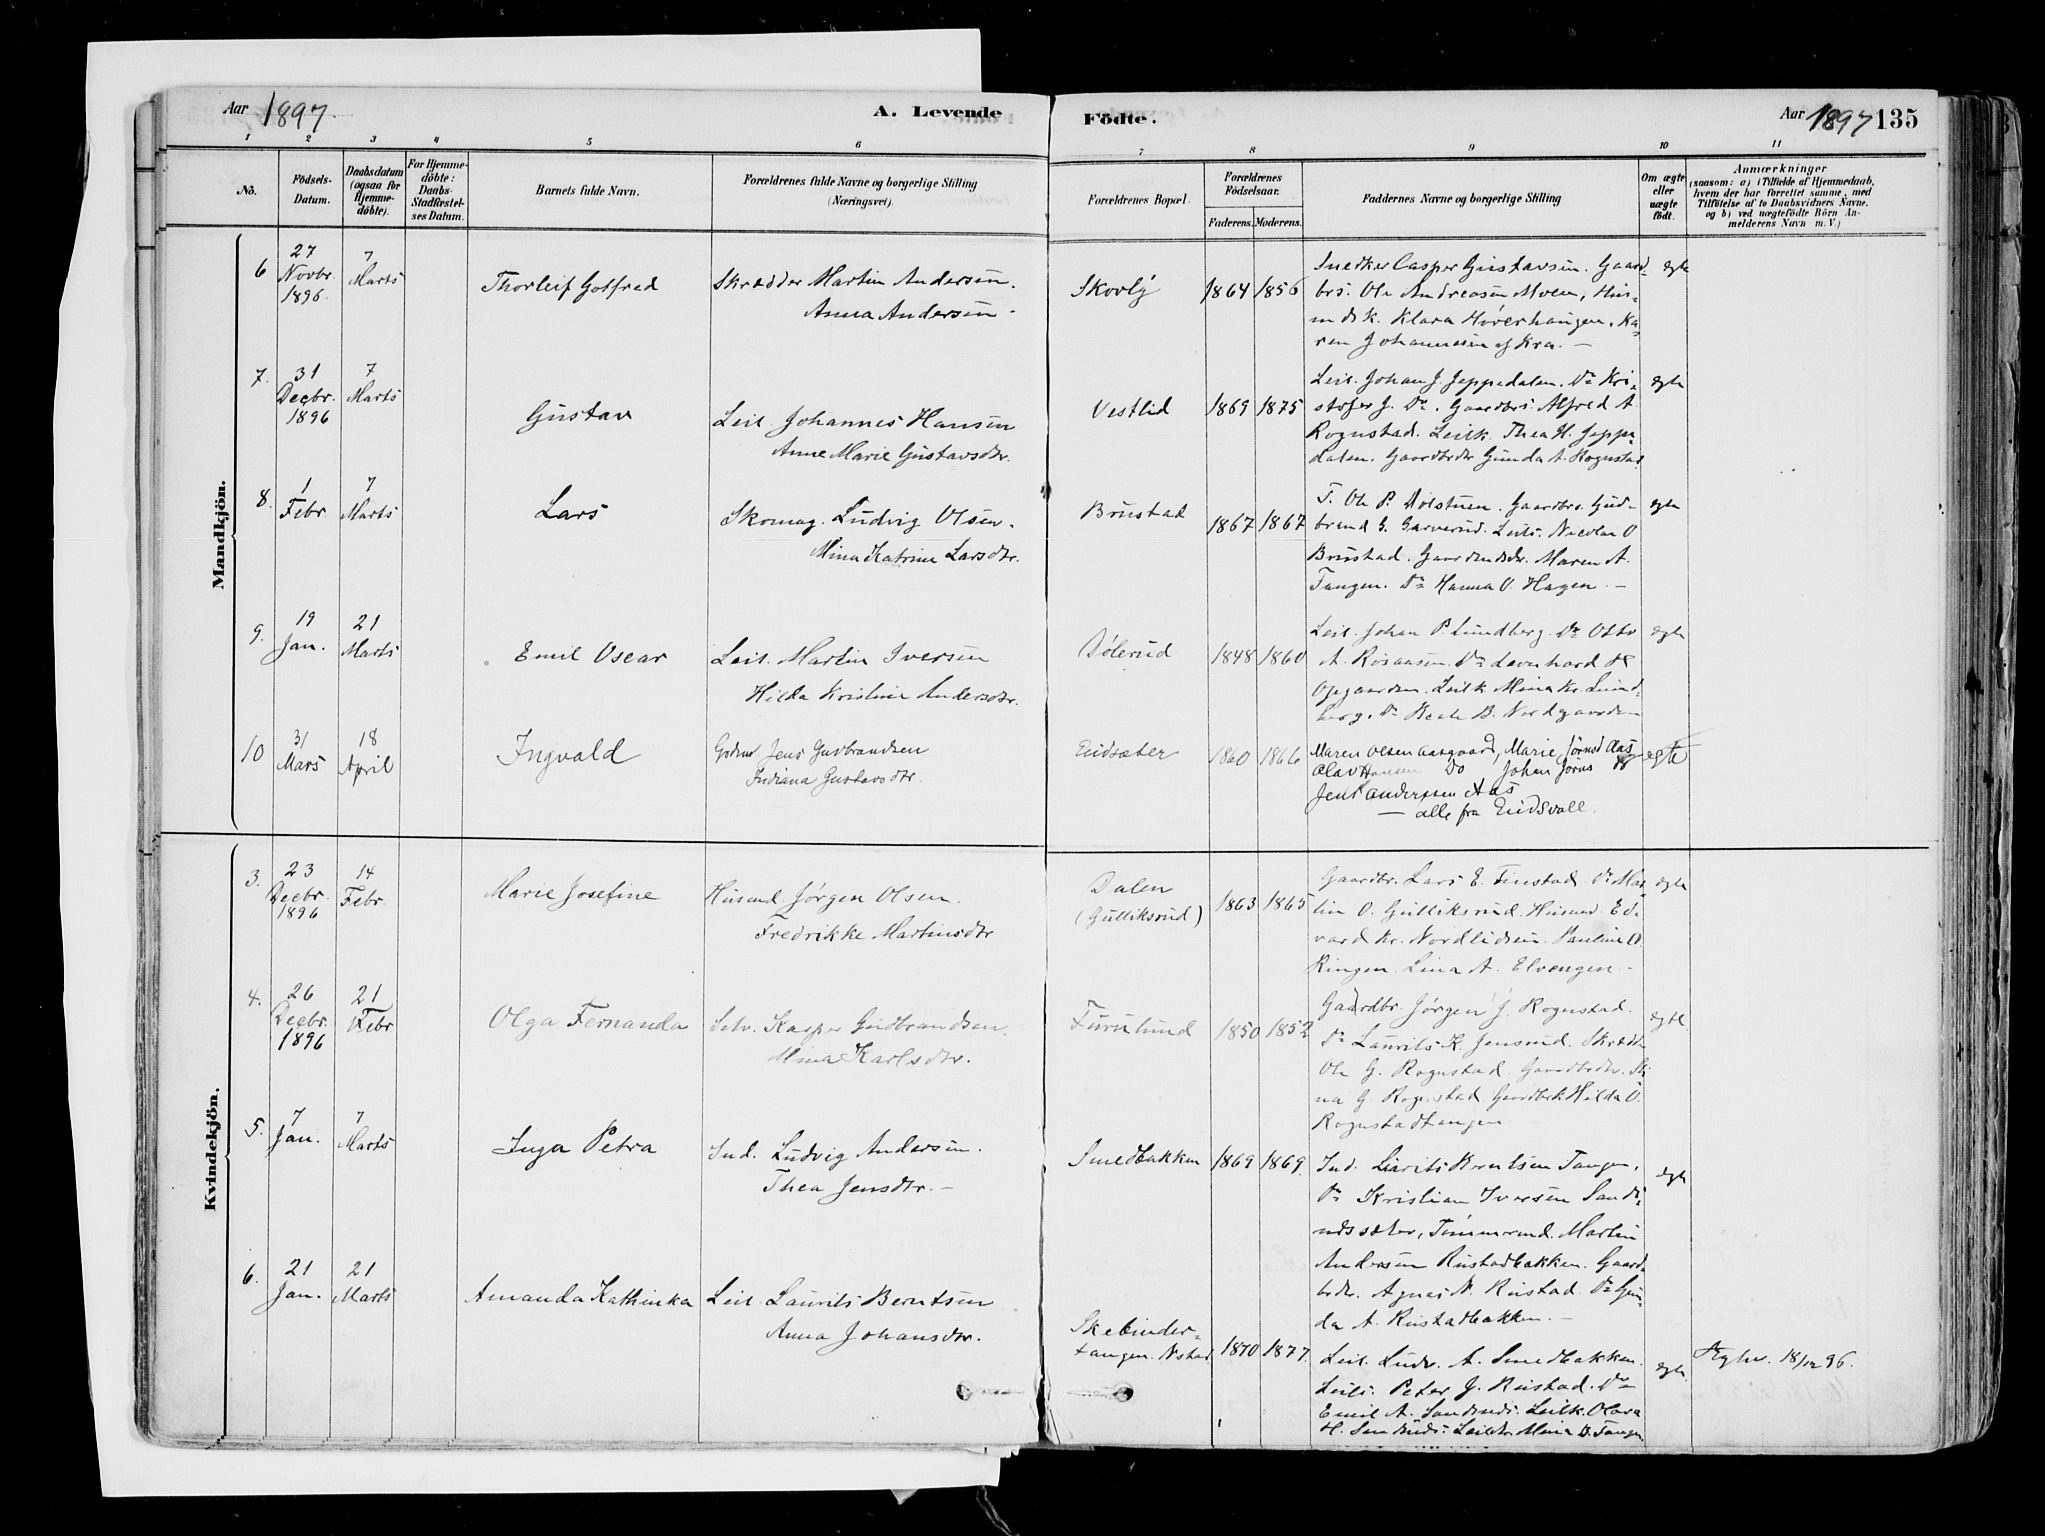 Aar 1897
A. Levende
Födte.
Aar 1897 135
1 2 3 4 5 6 7 8 9 10 11
Nô.
Födsels-Datum.
Daabsdatum (ogsaa for Hjemme-döbte).
For Hjemme-döbte: Daabs-Stadfæstel-ses Datum.
Barnets fulde Navn.
Forældrenes fulde Navne og borgerlige Stilling (Næringsvei).
Forældrenes Bopæl.
Forældrenes Födselsaar.
Faderens. Moderens.
Faddernes Navne og borgerlige Stilling
Om ægte eller uægte födt.
Anmærkninger
(saasom: a) i Tilfælde af Hjemmedaab,
hvem der har forrettet samme, med
Tilföielse af to Daabsvidners Navne.
og b) ved uægtefödte Börn An-
melderens Navn m. V.)
Mandkjön.
6 27 Novbr. 1896. 7 Marts
Thorleif Gotfred
Skrædder Martin Andersen.
Anna Andersen.
Skovly 1864 1856
Snedker Casper Gustavsen. Gaard-
brs. Ole Andreasen Moen, Hus-
mdsk. Klara Høverhaugen. Ka-
ren Johannesen af Kra. —
egte
7. 31 Decbr. 1896 7 Marts
Gustav
Leil. Johannes Hansen
Anne Marie Gustavsdtr.
Vestlid 1869 1875
Leil. Johan J. Jeppedalen. Do Kri-
stofer J. Do. Gaardbrs. Alfred A.
Rognstad. Leilk. Thea H. Jeppe-
dalen. Gaardbrdtr Gunda A. Rognstad
egte
8. 1 Febr. 7 Marts
Lars
Skomag. Ludvig Olsen.
Mina Katrine Larsdtr.
Brustad 1867 1867
T. Ole P. Dølstuen. Gaardbrs. Gud-
brand G. Garverud. Leils. Nicolai O
Brustad. Gaardmdsdtr. Maren A.
Tangen. Do Hanna O. Hagen. —
egte
9. 19 Jan. 21 Marts
Emil Oscar
Leil. Martin Iversen
Hilda Kristine Andersdtr.
Dølerud 1848 1860
Leil. Johan P. Lundberg. Do Otto
A. Rosaasen. Do Leonhard H
Opgaarden. Leilk Mina Kr. Lund-
berg. Do Beate B. Nordgaarden
egte
10 31 Mars 18 April
Ingvald
Jens Gudbrandsen
Indiana Gustavsdtr.
Eidsæter 1860 1866
Maren Olsen Aasgaard, Marie Jørnsd Aas
Olav Hansen Do Johan Jørns
Jens Anderssen Aas
— alle fra Eidsvoll.
egte
Kvindekjön.
3. 23 Decbr. 1896 14 Febr.
Marie Josefine
Husmd Jørgen Olsen.
Fredrikke Martinsdtr
Dalen
(Gulliksrud) 1863 1865
Gaardbr. Lars E. Finstad. Do Mar-
tin O. Gulliksrud. Husmd. Ed-
vard Kr. Nordlidsen. Pauline O.
Ringen. Lina A. Elvengen. —
egte
4. 26 Decbr. 1896 21 Febr
Olga Fernanda
Selv. Kasper Gudbrandsen.
Mina Karlsdtr.
Furulund 1850 1852
Gaardbr. Jørgen J. Rognstad.
Do Laurits K. Jensrud. Skrædd.
Ole G. Rognstad. Gaardbrdtr. Sti
na G. Rognstad. Gaardbrk Hilda O.
Rognstadtangen
egte
5. 7 Jan. 7 Marts
Inga Petra
Ind. Ludvig Andersen.
Thea Jensdtr. —
Smedbakken 1869 1869.
Ind. Laurits Berntsen Tangen,
Do Kristian Iversen Sand-
rudssæter, Tømmermd. Martin
Andersen Rustadbakken. Gaard-
brdtr. Agnes N. Rustad. Do Gun-
da A. Rustadbakken. —
egte
6. 21 Jan. 21 Marts
Amanda Kathinka
Leil. Laurits Berntsen
Anna Johansdtr.
Skebinder-
tangen. Nstad 1870 1877.
Leil. Ludv. A. Smedbakken.
Leils. Peter J. Rustad. Do
Emil A. Sandrud. Leilk. Olava
H. Sandrud. Leildtr Mina B. Tangen
egte
Æ 18/12 96.